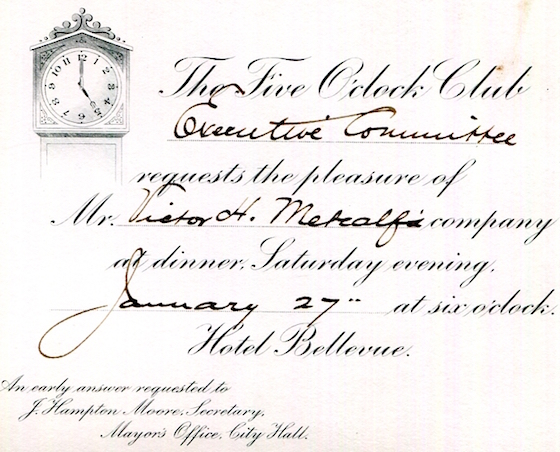 The Five O'clock Club
Executive Committee
requests the pleasure of
Mr. Victor H. Metcalf's company
at dinner, Saturday evening,
January 27" at six o'clock.
Hotel Bellevue.
An early answer requested to
J. Hampton Moore, Secretary,
Mayor's Office, City Hall.